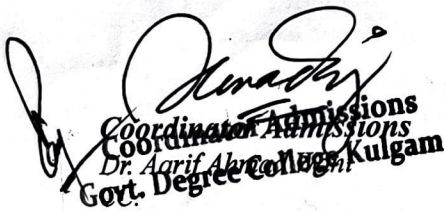 Coordinator Admissions
Coordinator Admissions
Dr. Aarif Ahmad
Govt. Degree College Kulgam